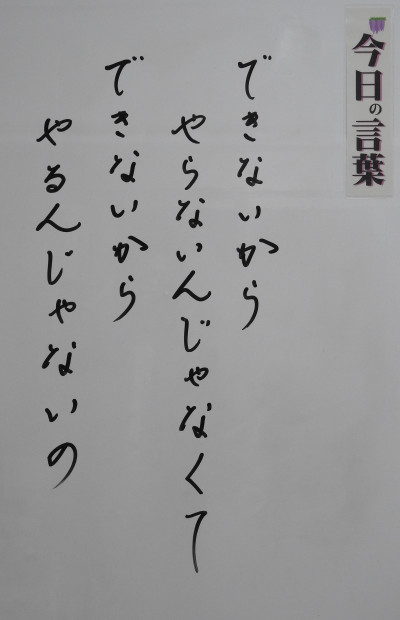 今日の言葉
できないから
やらないんじゃなくて
できないから
やるんじゃないの